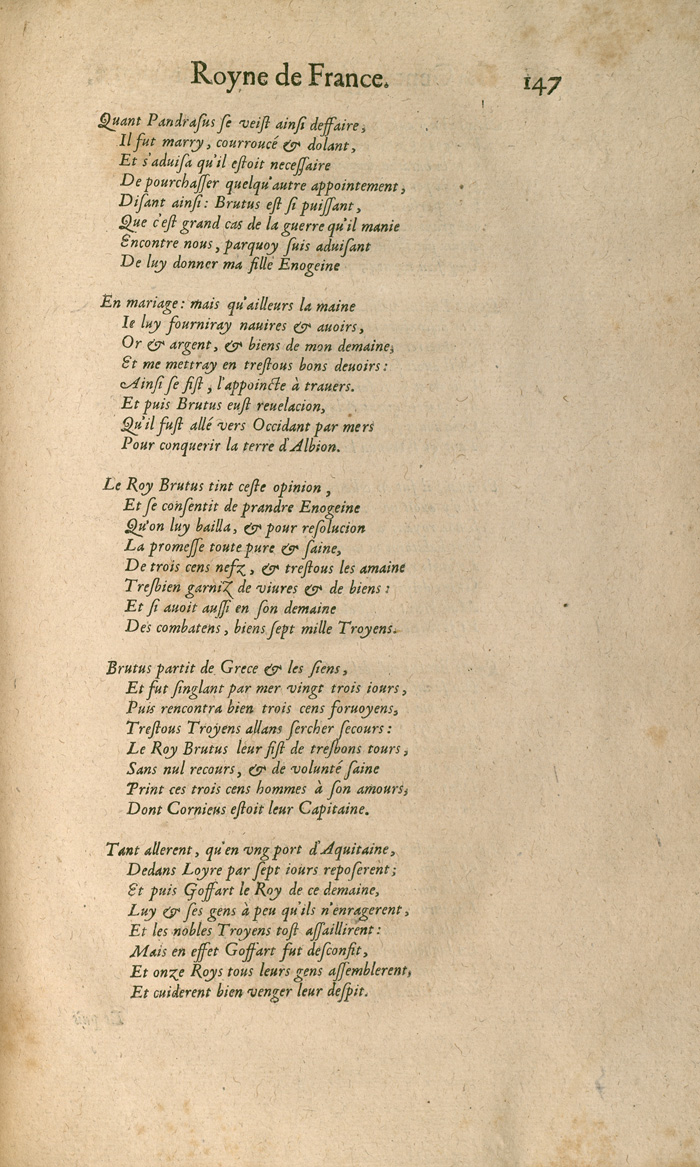 Royne de France. 147
Quant Pandraſus ſe veiſt ainſi deffaire,
Il fut marry, courroucé & dolant,
Et s'aduiſa qu'il eſtoit neceſſaire
De pourchaſſer quelqu'autre appointement,
Diſant ainſi: Brutus eſt ſi puiſſant,
Que c'eſt grand cas de la guerre qu'il manie
Encontre nous, parquoy ſuis aduiſant
De luy donner ma fille Enogeine
En mariage: mais qu'ailleurs la maine
Ie luy fourniray nauires & auoirs,
Or & argent, & biens de mon demaine,
Et me mettray en treſtous bons deuoirs:
Ainſi ſe fiſt, l'appoincte à trauers.
Et puis Brutus euſt reuelacion,
Qu'il fuſt allé vers Occidant par mers
Pour conquerir la terre d'Albion.
Le Roy Brutus tint ceſte opinion,
Et ſe conſentit de prandre Enogeine
Qu'on luy bailla, & pour reſolucion
La promeſſe toute pure & ſaine,
De trois cens nefz, & treſtous les amaine
Treſbien garniz de viures & de biens:
Et ſi auoit auſſi en ſon demaine
Des combatens, biens ſept mille Troyens.
Brutus partit de Grece & les ſiens,
Et fut ſinglant par mer vingt trois iours,
Puis rencontra bien trois cens foruoyens,
Treſtous Troyens allans ſercher ſecours:
Le Roy Brutus leur fiſt de treſbons tours,
Sans nul recours, & de volunté ſaine
Print ces trois cens hommes à ſon amours,
Dont Cornieus eſtoit leur Capitaine.
Tant allerent, qu'en vng port d'Aquitaine,
Dedans Loyre par ſept iours repoſerent;
Et puis Goffart le Roy de ce demaine,
Luy & ſes gens à peu qu'ils n'enragerent,
Et les nobles Troyens toſt aſſaillirent:
Mais en effet Goffart fut deſconfit,
Et onze Roys tous leurs gens aſſemblerent,
Et cuiderent bien venger leur deſpit.